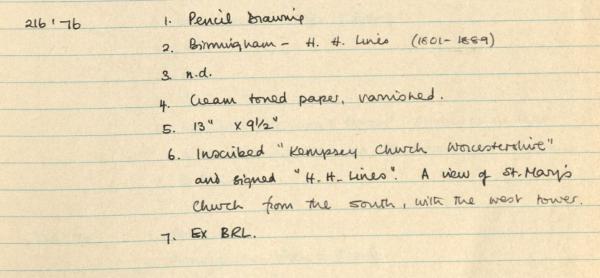 216'76 1. Pencil Drawing
2. Birmingham - H. H. Lines (1801-1889)
3. n.d.
4. Cream toned paper, varnished.
5. 13" x 9½"
6. Inscribed "Kempsey Church Worcestershire"
and signed "H. H. Lines". A view of St. Mary's
Church from the south, with the west tower.
7. Ex BRL.